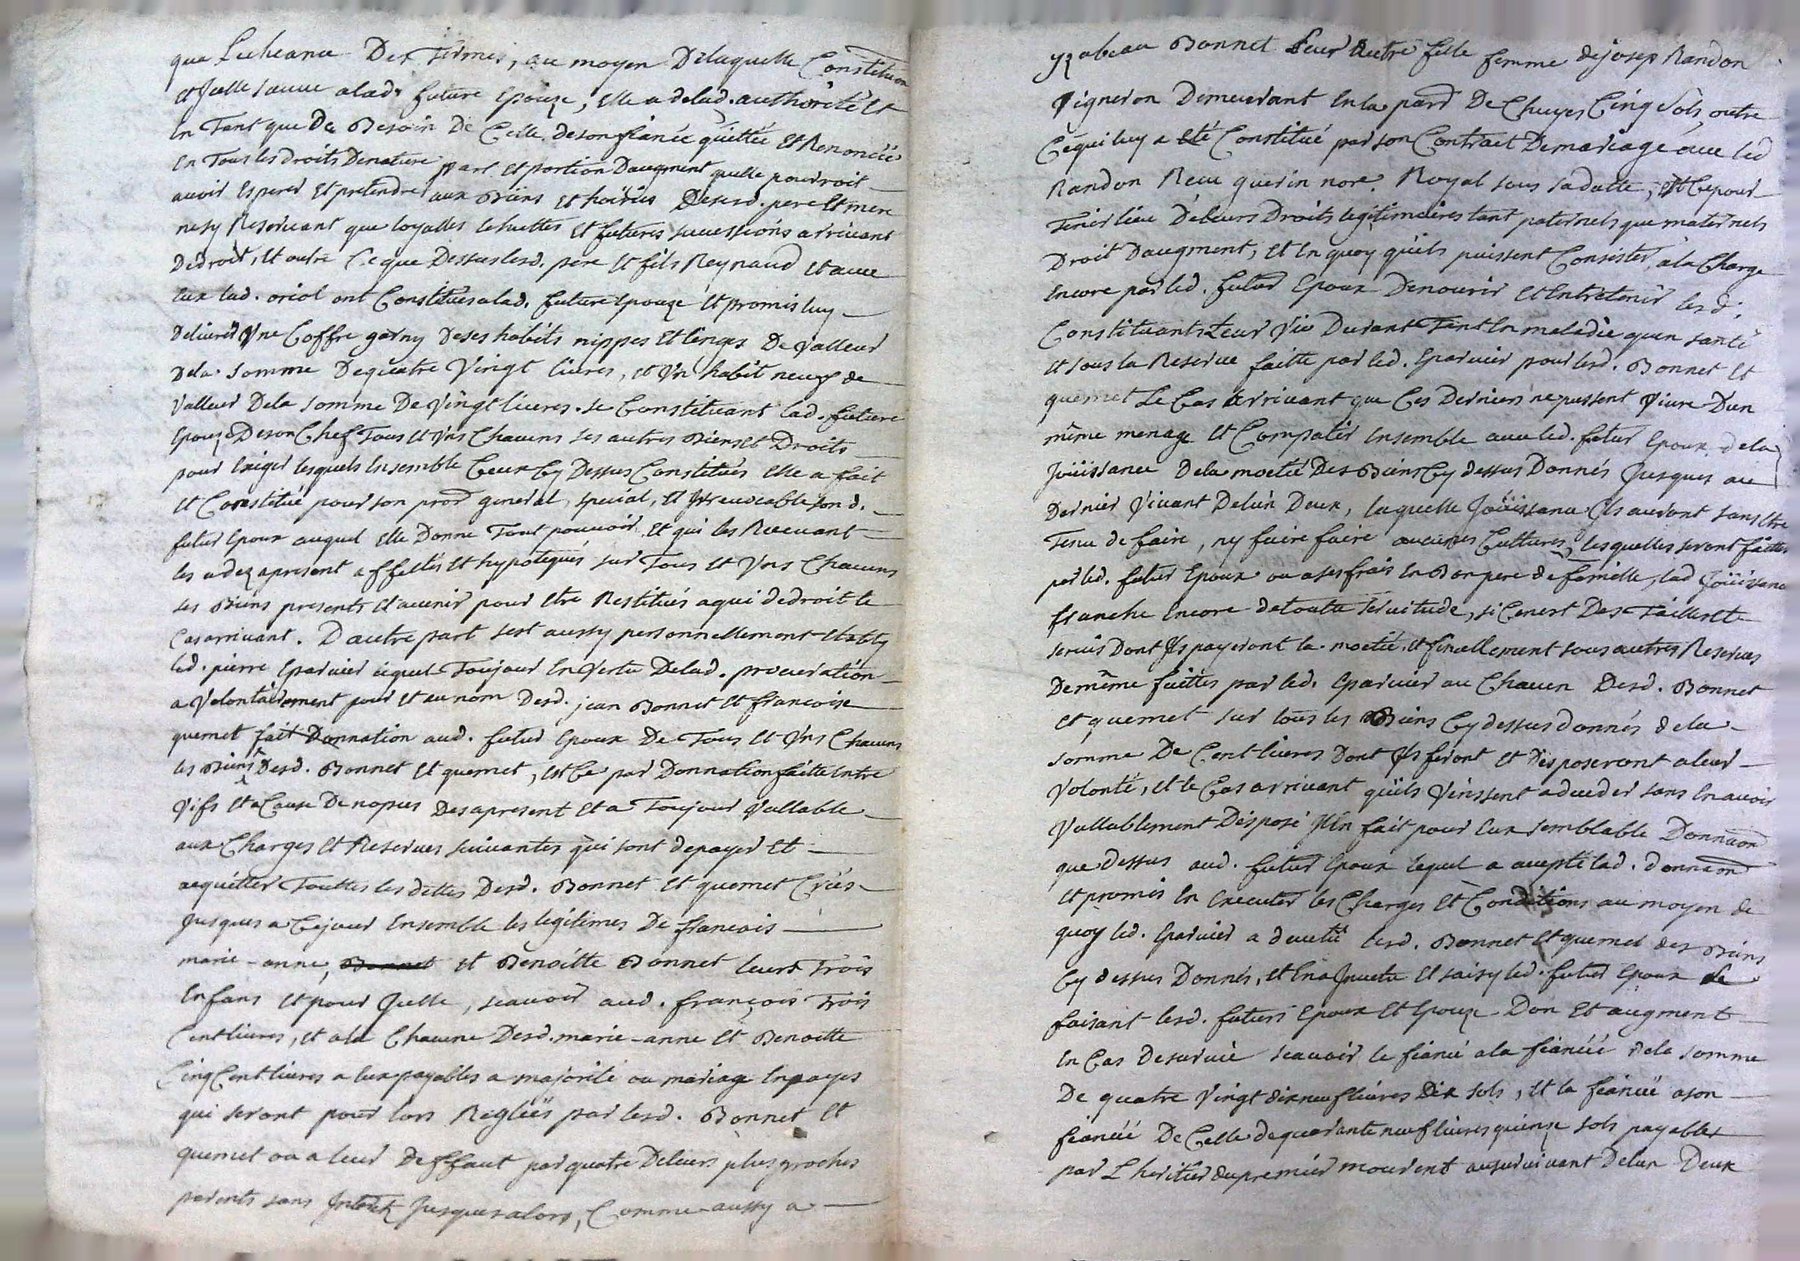 que Lecheance Des Termes, au moyen Delaquelle Constitution
et Jcelle sauve alad. future Epouze, Elle a delad. authorité Et
En Tant que De Besoin De Celle de son fiancé quittée Et Renoncée
En Tous les Droits De nature part Et portion Daugment quelle pourroit
avoir Esperer Et pretendre aux Biens Et hoiries Desesd. pere Et mere
nesy Reservant que loyalles Eschuttes Et futures successions arrivant
Dedroit, Et outre Ceque Dessus lesd. pere Et fils Reynaud Et avec
Eux lad. oriol ont Constitués alad. future Epouze Et promis luy
Delivrer Vne Coffre garny Deses habits nippes Et linges De Valleur
Dela somme Dequatre Vingt livres, Et Vn habit neuf de
Valleur Dela somme De Vingt livres. se Constituant lad. future
Epouze De son Chef Tous Et Vns Chacuns ses autres Biens Et Droits
pour Exiger lesquels Ensemble Ceux Cy Dessus Constitués Elle a fait
Et Constitué pour son procr general, special, Et Jrrevocable sond.
futur Epoux auquel Elle Donne Tout pouvoir Et qui les Recevant
les a dez apresent affectés Et hypotequés sur Tous Et Vns Chacuns
ses Biens presents Et avenir pour Etre Restitués aqui dedroit le
Cas arrivant. D'autre part sest aussy personnellement Etably
led. pierre Eparvier lequel Toujour En Vertu Delad. procuration
a Volontairement pour et au nom Desd. jean Bonnet Et francoise
quemet fait Donnation aud. futur Epoux De Tous Et Vns Chacuns
les Biens Desd. Bonnet Et quemet, Et Ce par Donnation faitte Entre
Vifs Et a Cause De nopces Des apresent Et a Toujour Vallable
aux Charges Et Reserves suivantes qui sont depayer Et
acquitter Touttes les dettes Desd. Bonnet Et quemet Créés
Jusques a Cejour Ensemble les legitimes De francois
marie-anne, Bonnet Et Benoitte Bonnet leurs Trois
Enfans Et pour Jcelle, scavoir aud. françois Trois
Cent livres, Et ala Chacune Desd. marie-anne Et Benoitte
Cinq Cent livres a Eux payables a majorité ou mariage En payes
qui seront pour lors Reglées par lesd. Bonnet Et
quemet ou a leur Deffaut par quatre De leurs plus proches
parents sans Jnterêt Jusques alors, Comme aussy a
yzabeau Bonnet Leur Autre fille femme de josep Randon
Vigneron Demeurant En la parr De Chuyes Cinq Sols, outre
Cequi luy a Eté Constitué par son Contract Demariage avec led
Randon Recu querin nore. Royal sous sa datte, Et Ce pour
Tenir lieu De leurs Droits legitimaires tant paternels que maternels
Droit Daugment, Et En quoy quils puissent Consister, a la Charge
Encore par led. futur Epoux De nourir Et Entretenir lesd.
Constituants Leur Vie Durant Tant En maladie quen santé
Et sous la Reserve faitte par led. Eparvier pour lesd. Bonnet Et
quemet Le Cas Arrivant que Ces Derniers ne pussent Vivre Dun
même menage Et Compatir Ensemble avec led. futur Epoux, de la
Joüissance Dela moetié Des Biens Cy dessus Donnés Jusques au
Dernier Vivant Delun Deux, laquelle Joüissance Jls auront sans Etre
Tenu de faire, ny faire faire aucunes Cultures, lesquelles seront faittes
par led. futur Epoux ou a ses frais En Bon pere de famille, lad Joüissance
franche Encore de toutte servitude, si Cenest Des Tailles Et
servis Dont Jls payeront la moetié, Et finallement sous autres Reserves
De même faittes par led. Eparvier au Chacun Desd. Bonnet
Et quemet sur tous les Biens Cy dessus donnés de la
somme De Cent livres Dont Jls feront et Disposeront a leur
Volonté, Et le Cas arrivant quils Vinssent a deceder sans En avoir
Vallablement Disposé Jl En fait pour Eux semblable Donnaon
que dessus aud. futur Epoux lequel a accepté lad. Donnaon
Et promis En Executer les Charges Et Conditions au moyen de
quoy led. Eparvier a devetu lesd. Bonnet Et quemet des Biens
Cy dessus Donnés, Et En a Jnvetu Et saisy led. futur Epoux se
faisant lesd. futurs Epoux Et Epouze Don Et augment
En Cas Desurvie scavoir le fiancé a la fiancée dela somme
De quatre Vingt dixneuf livres Dix sols, Et la fiancée a son
fiancé De Celle dequarante neuf livres quinze sols payables
par L'heritier du premier mourant au survivant Delun Deux